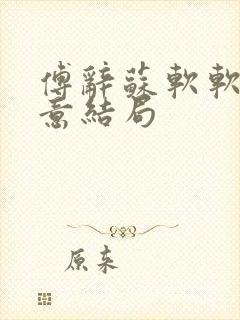 傅辭蘇軟軟
意結局
原来